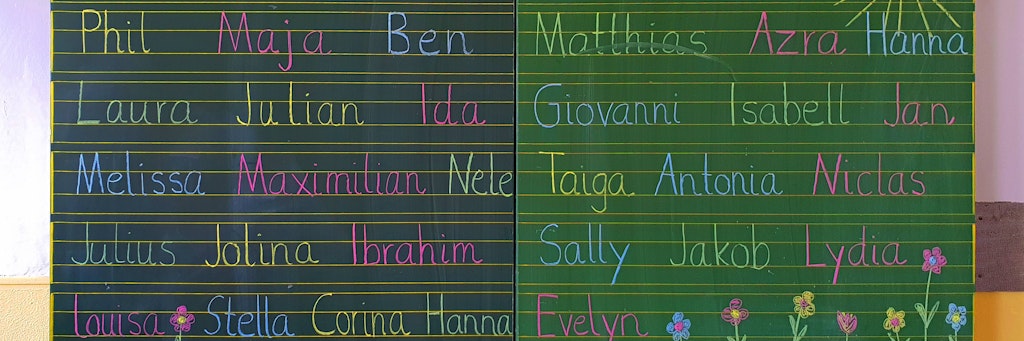 Phil Maja Ben
Laura Julian Ida
Melissa Maximilian Nele
Julius Jolina Ibrahim
Louisa Stella Corina Hanna
Matthias Azra Hanna
Giovanni Isabell Jan
Taiga Antonia Niclas
Sally Jakob Lydia
Evelyn